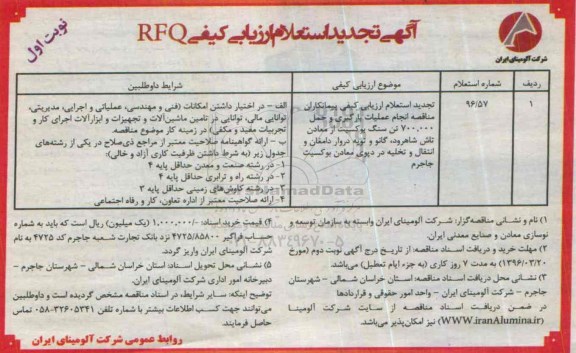 نوبت اول
آگهی تجدید استعلام ارزیابی کیفی RFQ
شرکت آلومینای ایران
ردیف
شماره استعلام
موضوع ارزیابی کیفی
شرایط داوطلبین
۱
۹۶/۵۷
تجدید استعلام ارزیابی کیفی پیمانکاران
مناقصه انجام عملیات بارگیری و حمل
۷۰۰,۰۰۰ تن سنگ بوکسیت از معادن
تاش شاهرود، گانو و تویه دروار دامغان و
انتقال و تخلیه در دپوی معادن بوکسیت
جاجرم
الف - در اختیار داشتن امکانات (فنی و مهندسی، عملیاتی و اجرایی، مدیریتی،
توانایی مالی، توانایی در تامین ماشین‌آلات و تجهیزات و ابزارآلات اجرای کار و
تجربیات مفید و مکفی) در زمینه کار موضوع مناقصه.
ب - ارائه گواهینامه صلاحیت معتبر از مراجع ذی‌صلاح در یکی از رشته‌های
جدول زیر (به شرط داشتن ظرفیت کاری آزاد و خالی):
۱- در رشته صنعت و معدن حداقل پایه ۴
۲- در رشته راه و ترابری حداقل پایه ۴
۳- در رشته کاوش‌های زمینی حداقل پایه ۳
۴- ارائه صلاحیت معتبر از اداره تعاون، کار و رفاه اجتماعی
۱) نام و نشانی مناقصه‌گزار: شرکت آلومینای ایران وابسته به سازمان توسعه و
نوسازی معادن و صنایع معدنی ایران.
۲) مهلت خرید و دریافت اسناد مناقصه: از تاریخ درج آگهی نوبت دوم (مورخ
۱۳۹۶/۰۳/۲۰) به مدت ۷ روز کاری (به جزء ایام تعطیل) می‌باشد.
۳) نشانی محل دریافت اسناد مناقصه: استان خراسان شمالی - شهرستان
جاجرم - شرکت آلومینای ایران - واحد امور حقوقی و قراردادها
در ضمن دریافت اسناد مناقصه از سایت شرکت آلومینا
(WWW.iranAlumina.ir) نیز امکان‌پذیر می‌باشد.
۴) قیمت خرید اسناد: ۱,۰۰۰,۰۰۰/- (یک میلیون) ریال است که باید به شماره
حساب فراگیر ۴۷۲۵/۸۵۸۰۰ نزد بانک تجارت شعبه جاجرم کد ۴۷۲۵ به نام
شرکت آلومینای ایران واریز گردد.
۵) نشانی محل تحویل اسناد: استان خراسان شمالی - شهرستان جاجرم -
دبیرخانه امور اداری شرکت آلومینای ایران.
توضیح اینکه: سایر شرایط، در اسناد مناقصه مشخص گردیده است و داوطلبین
می‌توانند جهت کسب اطلاعات بیشتر با شماره تلفن ۳۲۶۰۵۳۴۱-۰۵۸ تماس
حاصل فرمایند.
روابط عمومی شرکت آلومینای ایران